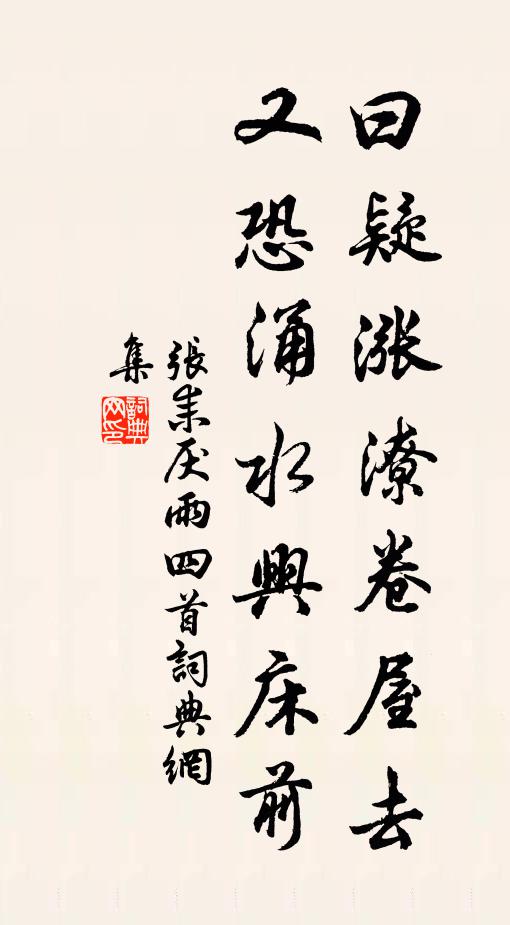 曰疑漲潦卷屋去
又恐涌水興床前
張耒厌雨四首詞典網
集
詞典
网印